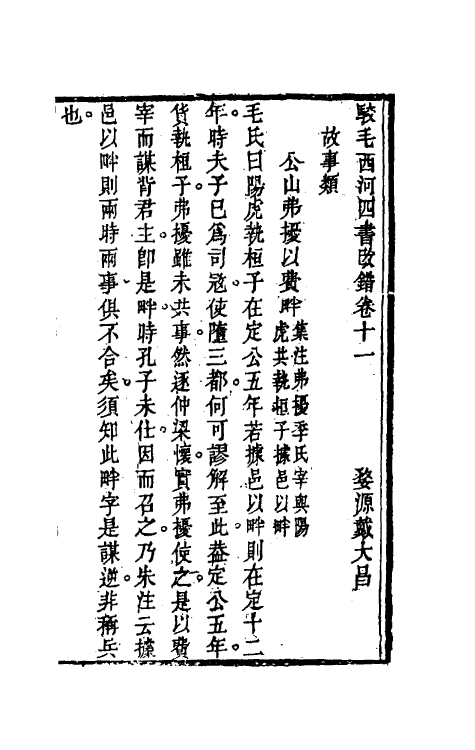 駁毛西河四書改錯卷十一　婺源戴大昌
故事類
公山弗擾以費畔集注弗擾季氏宰與陽
虎共執桓子據邑以畔
毛氏曰陽虎執桓子在定公五年若據邑以畔則在定十二
年時夫子已爲司寇使墮三都何可謬解至此葢定公五年
貨執桓子弗擾雖未共事然逐仲梁懷實弗擾使之是以費
宰而謀背君主卽是畔時孔子未仕因而召之乃朱注云據
邑以畔則兩時兩事俱不合矣須知此畔字是謀逆非稱兵
也